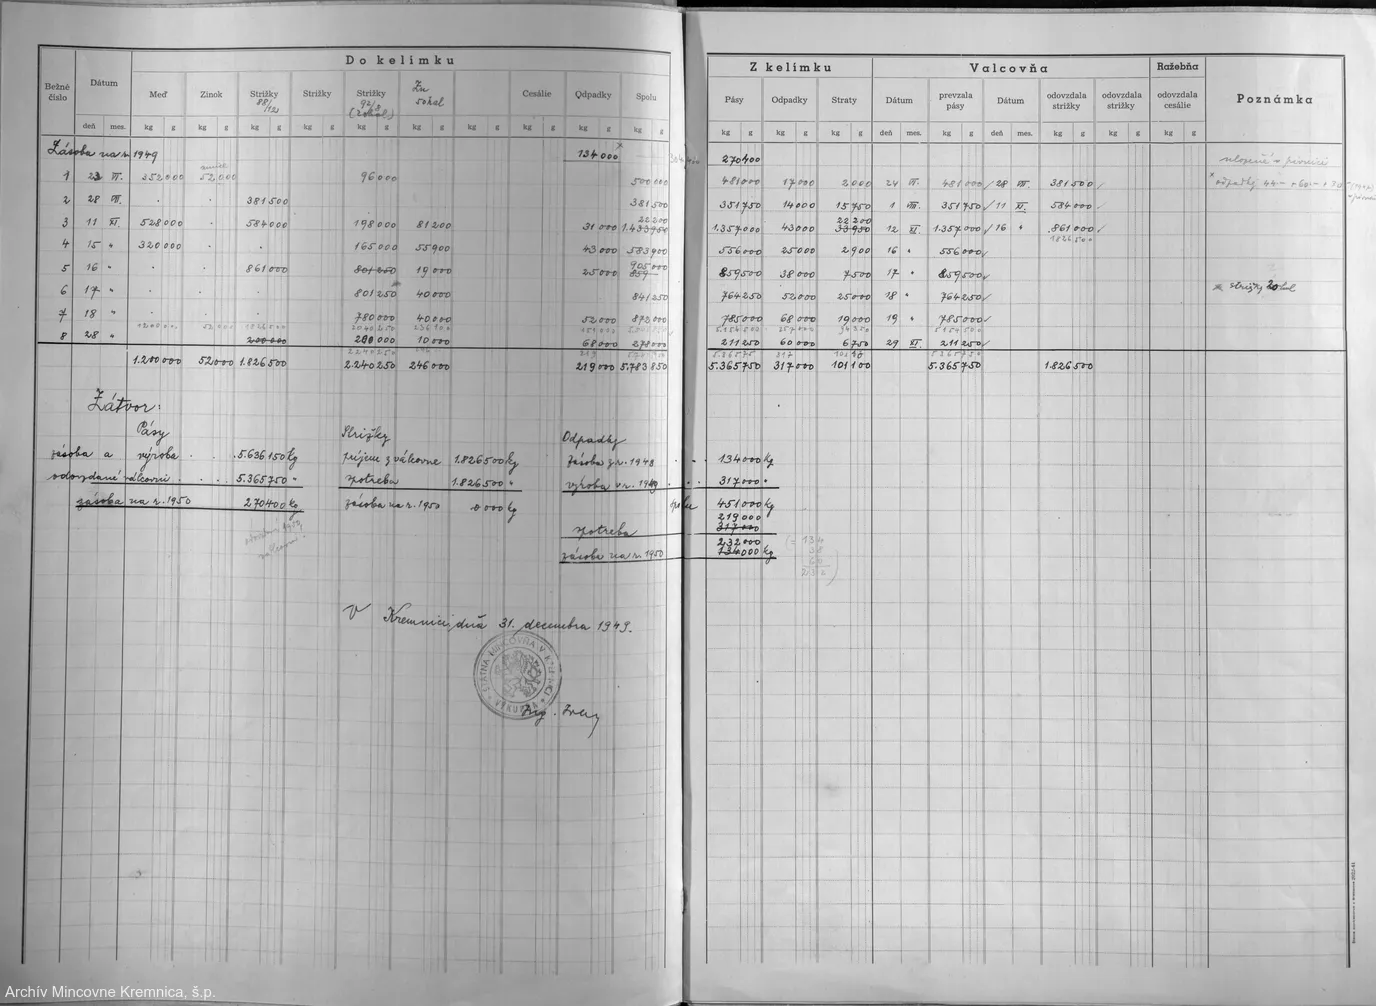 Do kelímku
Bežné číslo
Dátum
Meď
Zinok
Strižky 88/12
Strižky
Strižky 92/8 (zokal)
Zn sokal
Cesálie
Odpadky
Spolu
deň mes. kg g kg g kg g kg g kg g kg g kg g kg g kg g
Z kelímku
Valcovňa
Ražebňa
Poznámka
Pásy
Odpadky
Straty
Dátum
prevzala pásy
Dátum
odovzdala strižky
odovzdala strižky
odovzdala cesálie
kg g kg g kg g deň mes. kg g deň mes. kg g kg g kg g
Zásoba na r. 1949 134000 270400
1 23 VI. 352000 52000 96000 500000 481000 17000 2000 24 VI. 481000 28 VII. 381500
2 28 VII. 381500 381500 351750 14000 15750 1 VIII. 351750 11 XI. 584000
3 11 XI. 528000 584000 198000 81200 31000 1.433950 22200 1.357000 43000 33950 22200 12 XI. 1.357000 16 " 861000
1826500
4 15 " 320000 165000 55900 43000 583900 556000 25000 2900 16 " 556000
5 16 " 861000 801250 19000 25000 905000 859500 38000 7500 17 " 859500
6 17 " 801250 40000 841250 764250 52000 25000 18 " 764250
strižky zokal
7 18 " 780000 40000 52000 872000 785000 68000 19000 19 " 785000
8 28 " 200000 200000 10000 68000 278000 211250 60000 6750 29 XI. 211250
1.200000 52000 1.826500 2.240250 246000 219000 5.783850 5.365750 317000 101100 5.365750 1.826500
Zátvor:
Pásy Strižky Odpadky
zásoba a výroba 5.636150 kg príjem z válcovne 1.826500 kg zásoba z r. 1948 134000 kg
odovzdané válcovni 5.365750 " spotreba 1.826500 " výroba v r. 1949 317000 "
zásoba na r. 1950 270400 kg zásoba na r. 1950 0000 kg spolu 451000 kg
219000
spotreba 317000
232000
zásoba na r. 1950 134000 kg
(= 134
38
60
232)
V Kremnici, dňa 31. decembra 1949.
ŠTÁTNA MINCOVŇA V KREMNICI
Ing.
Archív Mincovne Kremnica, š.p.